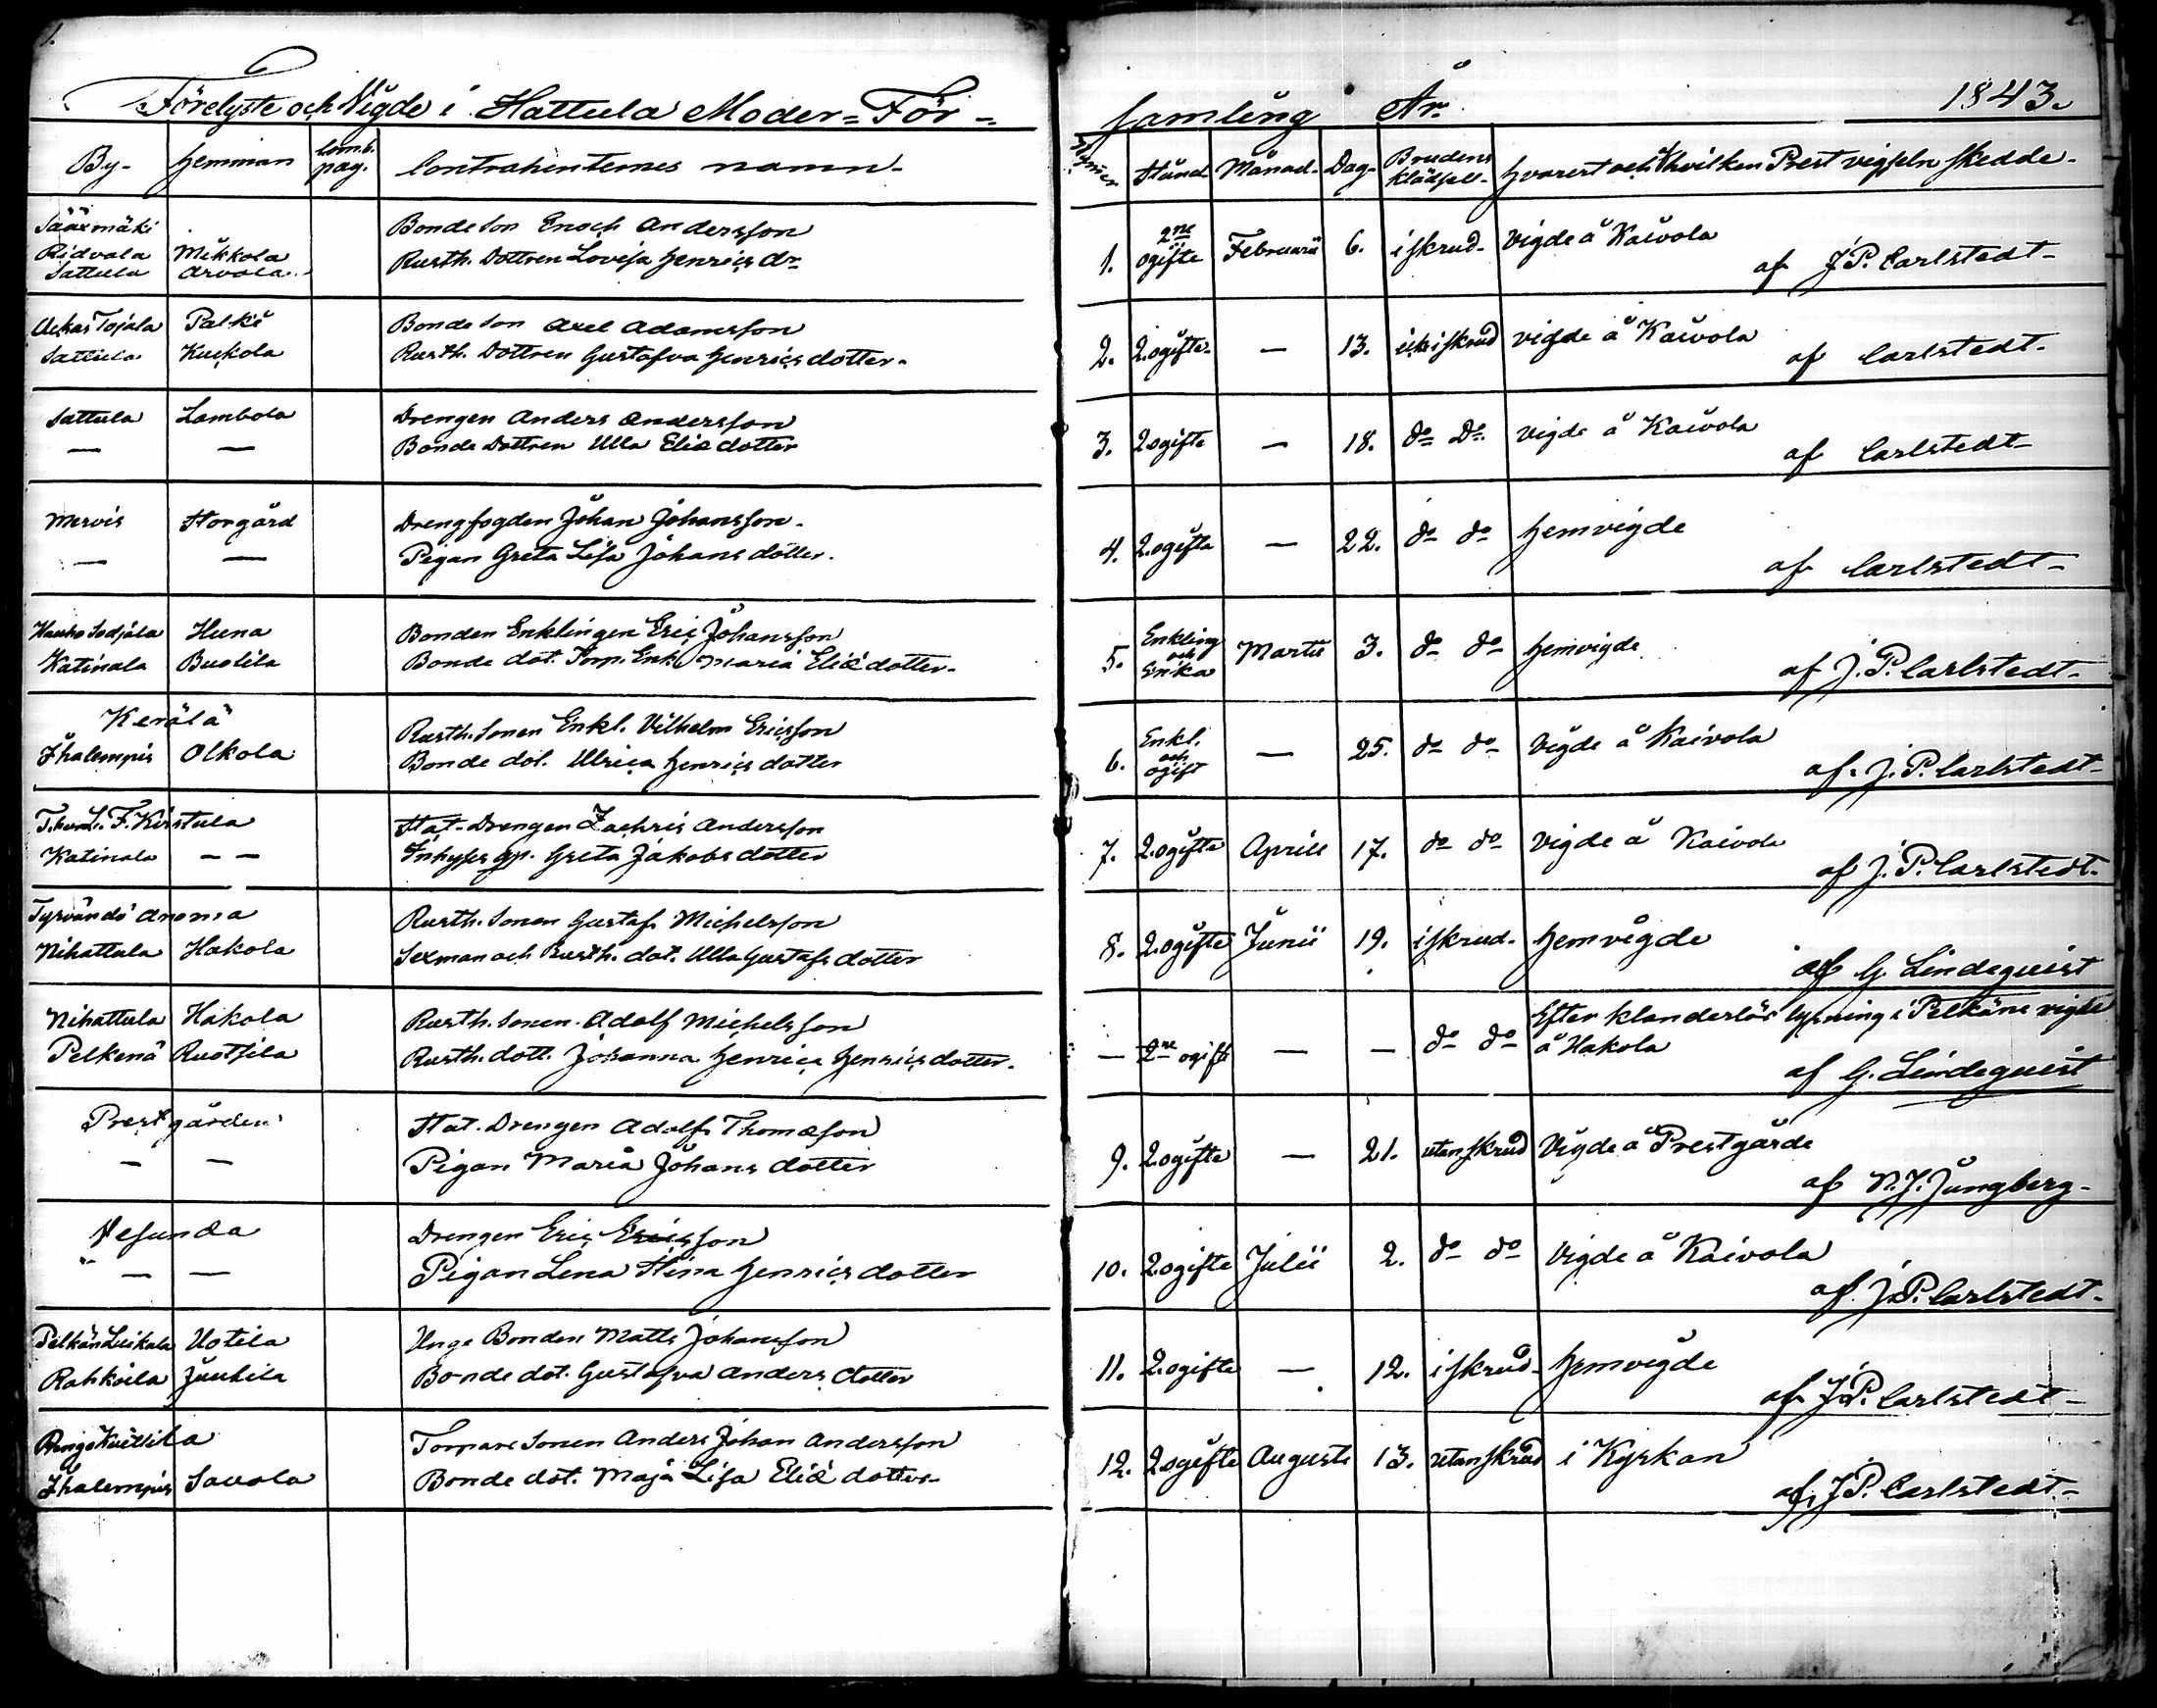 1.
Förelyste och Vigde i Hattula Moder=För-
By- Hemman Com.b. pag. Contrahenternes namn-
Sääxmäki
Bonde Son Enoch Andersson
Ridvala Mikkola
Sattula Arvola
Rusth. Dottren Lovisa Henrics dr
Palki
Bonde Son Axel Adamsson
Sattula Kuckola
Rusth. Dottren Gustafva Henrics dotter-
Sattula Lambola
Drengen Anders Andersson
— —
Bonde Dottren Ulla Eliæ dotter
Mervis Storgård
Drengfogden Johan Johansson-
— —
Pigan Greta Lisa Johans dotter.
Hauho Huna
Bonden Enklingen Eric Johansson
Katinala Buotila
Bonde dot. Torp. Enk. Maria Eliæ dotter-
Kerälä
Rusth. Sonen Enkl. Vilhelm Ericsson
Ihalempis Olkola
Bonde dot. Ulrica Henrics dotter
Kirstula
Stat-Drengen Zachris Andersson
Katinala — —
Inhyses gp. Greta Jakobs dotter
Tyrvändö Anomia
Rusth. Sonen Gustaf Michelsson
Nihattula Hakola
Sexman och Rusth. dot. Ulla Gustafs dotter
Nihattula Hakola
Rusth. Sonen Adolf Michelsson
Pelkenä Ruotsila
Rusth. dott. Johanna Henrica Henrics dotter.
Prestgården
Stat. Drengen Adolf Thomæson
— —
Pigan Maria Johans dotter
Vesunda
Drengen Eric Ericsson
— —
Pigan Lena Stina Henrics dotter
Uotila
Unge Bonden Matts Johansson
Rahkoila Juutila
Bonde dot. Gustafva Anders dotter
Kuittila
Torpare Sonen Anders Johan Andersson
Ihalempis Savola
Bonde dot. Maja Lisa Eliæ dotter-
2.
samling År 1843.
Stånd- Månad- Dag- Brudens klädsel- Hvarest och af hvilken Prest vigseln skedde-
1. 2ne ogifte Februarii 6. i skrud- Vigde å Kaivola
af J.P. Carlstedt-
2. 2.ogifte- — 13. icke i skrud vigde å Kaivola
af Carlstedt-
3. 2 ogifte — 18. do Do Vigde å Kaivola
af Carlstedt-
4. 2.ogifta — 22. do do Hemvigde
af Carlstedt-
5. Enkling och Enka Martii 3. do do Hemvigde
af J.P. Carlstedt-
6. Enkl. och ogift — 25. do do Vigde å Kaivola
af J.P. Carlstedt-
7. 2.ogifta Aprill 17. do do Vigde å Kaivola
af J.P. Carlstedt.
8. 2.ogifte Junii 19. i skrud- Hemvigde
af G. Lindequist
— 2ne ogift — — do do Efter klanderlös lysning i Pelkäne vigde
å Hakola
af G. Lindequist
9. 2.ogifte — 21. utan skrud Vigde å Prestgårde
af N.J. Jungberg-
10. 2.ogifte Julii 2. do do Vigde å Kaivola
af J.P. Carlstedt-
11. 2.ogifte — 12. i skrud- Hemvigde
af J.P. Carlstedt-
12. 2 ogifte Augusti 13. utan skrud i Kyrkan
af J.P. Carlstedt-